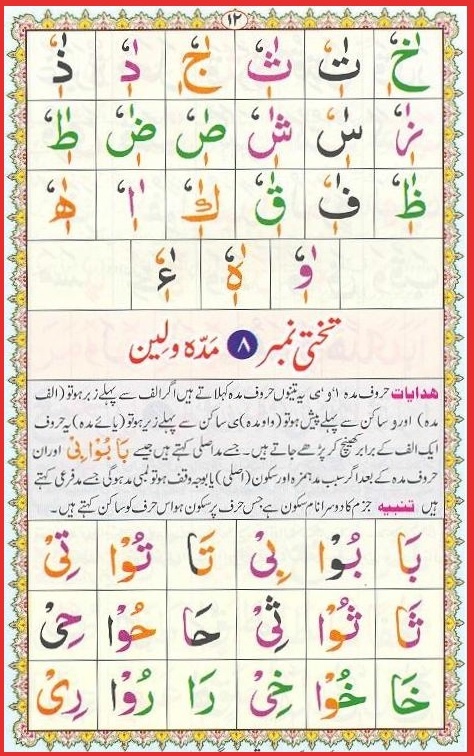 ۱۲
خٰٖٗ تٰٖٗ ثٰٖٗ جٰٖٗ دٰٖٗ ذٰٖٗ
زٰٖٗ سٰٖٗ شٰٖٗ صٰٖٗ ضٰٖٗ طٰٖٗ
ظٰٖٗ فٰٖٗ قٰٖٗ كٰٖٗ اٰٖٗ ھٰٖٗ
وٰٖٗ ہٰٖٗ ءٰٖٗ
تختی نمبر ۸ مَدّہ و لِین
ھدایات حروف مدہ ا ٗ و ٗ ی یہ تینوں حروف مدہ کہلاتے ہیں اگر الف سے پہلے زبر ہو تو (الف
مدہ) اور و ساکن سے پہلے پیش ہو تو (واو مدہ) ی ساکن سے پہلے زیر ہو تو (یائے مدہ) یہ حروف
ایک الف کے برابر کھینچ کر پڑھے جاتے ہیں۔ جسے مد اصلی کہتے ہیں جیسے بَا بُوْا بِیْ اور ان
حروف مدہ کے بعد اگر سبب مد ہمزہ اور سکون (اصلی) یا بوجہ وقف ہو تو لمبی مد ہوگی جسے مد فرعی کہتے
ہیں تنبیہ جزم کا دوسرا نام سکون ہے جس حرف پر سکون ہو اس حرف کو ساکن کہتے ہیں۔
بَا بُوْا بِیْ تَا تُوْا تِیْ
ثَا ثُوْا ثِیْ حَا حُوْا حِیْ
خَا خُوْا خِیْ رَا رُوْا رِیْ